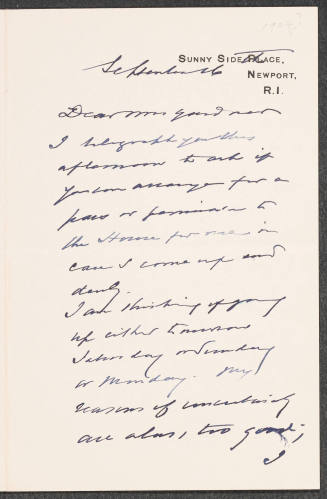 1904?
SUNNY SIDE PLACE,
NEWPORT,
R.I.
September
Dear Mrs Gardner
I telegraph you this
afternoon to ask if
you can arrange for a
pass or permission to
the House for me in
case I come up suddenly.
I am thinking of going
up either tomorrow
Saturday or Sunday
or Monday. My
reasons of uncertainty
are alas, too good;
I